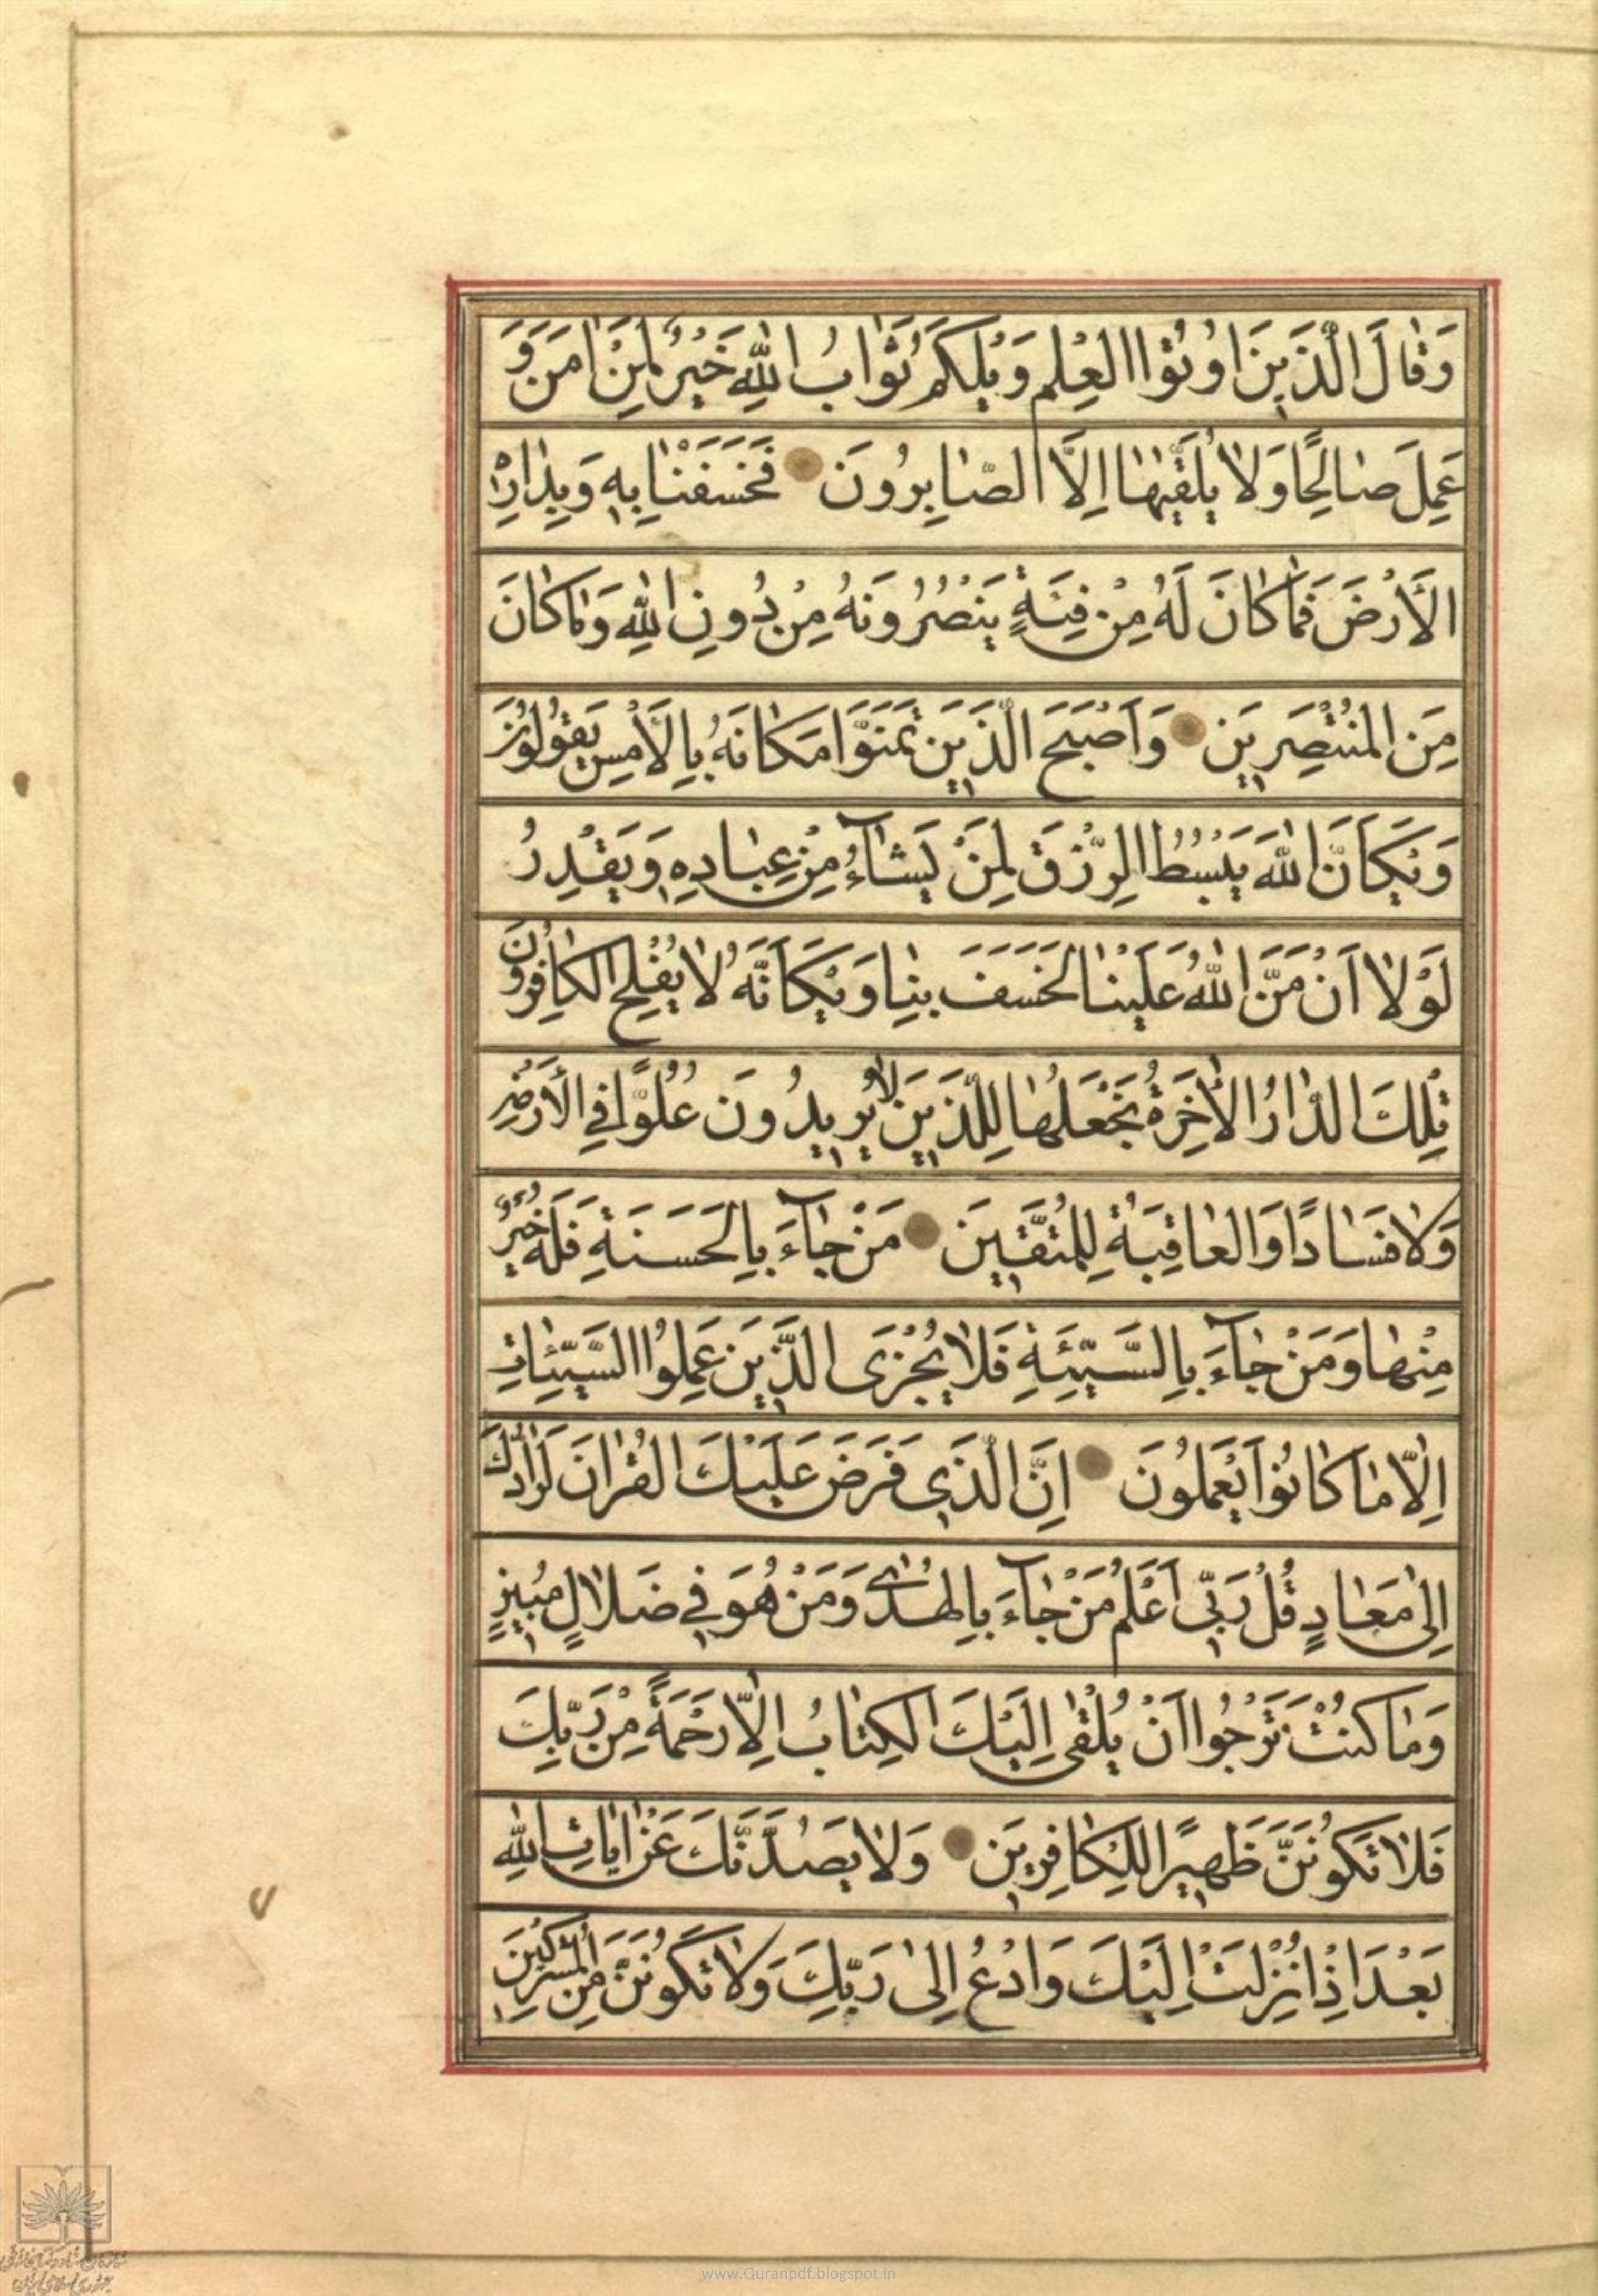 وَقٰالَ الَّذينَ اوُتُوا العِلْمِ وَيْلَكُمْ ثَوٰابُ اللّٰهِ خَيْرٌ لِمَنْ اٰمَنَ وَ
عَمِلَ صٰالِحًا وَلٰا يُلَقّٰيهٰا اِلَّا الصّٰابِرُونَ فَخَسَفْنٰا بِهِ وَبِدٰارِهِ
الْأَرْضَ فَمٰا كٰانَ لَهُ مِنْ فِئَةٍ يَنْصُرُونَهُ مِنْ دُونِ اللّٰهِ وَمٰا كٰانَ
مِنَ المُنْتَصِرينَ وَاَصْبَحَ الَّذينَ تَمَنَّوْا مَكٰانَهُ بِالْأَمْسِ يَقُولُونَ
وَيْكَاَنَّ اللّٰهَ يَبْسُطُ الرِّزْقَ لِمَنْ يَشٰآءُ مِنْ عِبٰادِهِ وَيَقْدِرُ
لَوْلٰا اَنْ مَنَّ اللّٰهُ عَلَيْنٰا لَخَسَفَ بِنٰا وَيْكَاَنَّهُ لٰا يُفْلِحُ الكٰافِرُونَ
تِلْكَ الدّٰارُ الْأٰخِرَةُ نَجْعَلُهٰا لِلَّذينَ لٰا يُريدُونَ عُلُوًّا فِي الْأَرْضِ
وَلٰا فَسٰادًا وَالعٰاقِبَةُ لِلْمُتَّقينَ مَنْ جٰآءَ بِالحَسَنَةِ فَلَهُ خَيْرٌ
مِنْهٰا وَمَنْ جٰآءَ بِالسَّيِّئَةِ فَلٰا يُجْزَى الَّذينَ عَمِلُوا السَّيِّئٰاتِ
اِلّٰا مٰا كٰانُوا يَعْمَلُونَ اِنَّ الَّذي فَرَضَ عَلَيْكَ القُرْاٰنَ لَرٰادُّكَ
اِلٰى مَعٰادٍ قُلْ رَبّي اَعْلَمُ مَنْ جٰآءَ بِالهُدٰى وَمَنْ هُوَ في ضَلٰالٍ مُبينٍ
وَمٰا كُنْتَ تَرْجُوا اَنْ يُلْقٰى اِلَيْكَ الكِتٰابُ اِلّٰا رَحْمَةً مِنْ رَبِّكَ
فَلٰا تَكُونَنَّ ظَهيرًا لِلْكٰافِرينَ وَلٰا يَصُدُّنَّكَ عَنْ اٰيٰاتِ اللّٰهِ
بَعْدَ اِذْ اُنْزِلَتْ اِلَيْكَ وَادْعُ اِلٰى رَبِّكَ وَلٰا تَكُونَنَّ مِنَ المُشْرِكينَ
www.Quranpdf.blogspot.in